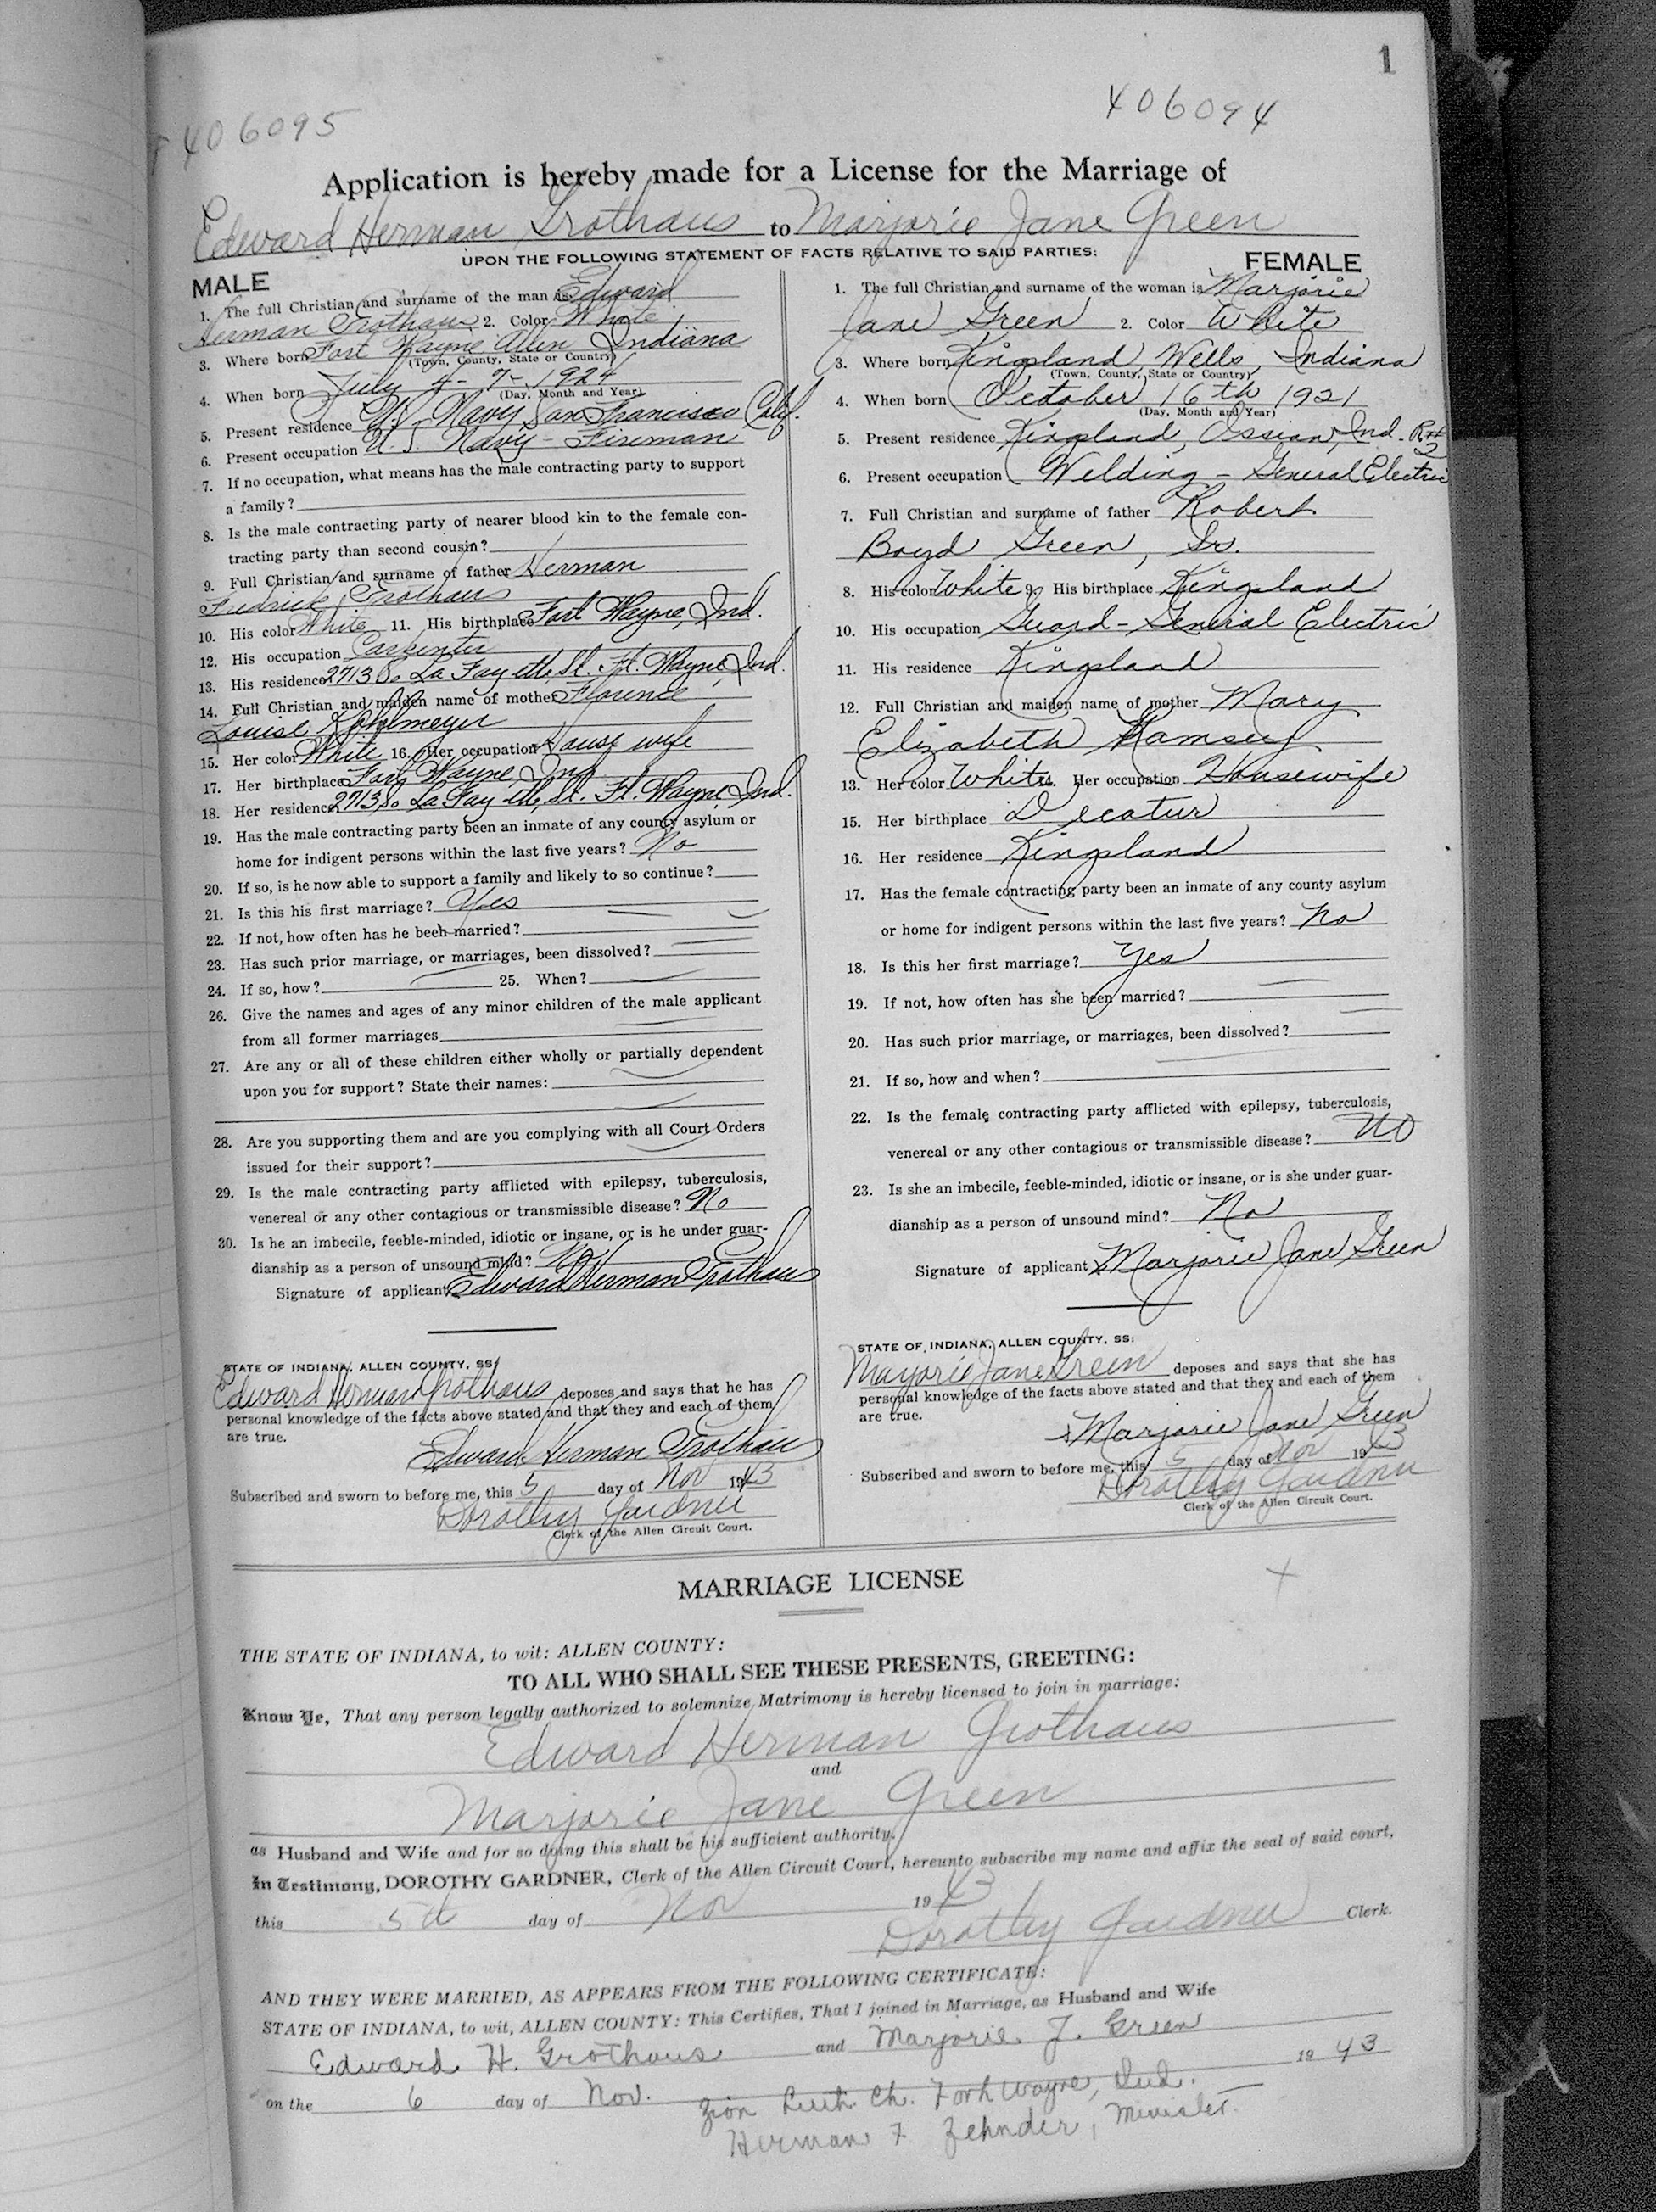 1
406095
406094
Application is hereby made for a License for the Marriage of
Edward Herman Grothaus to Marjorie Jane Green
UPON THE FOLLOWING STATEMENT OF FACTS RELATIVE TO SAID PARTIES:
MALE
1. The full Christian and surname of the man is Edward
Herman Grothaus 2. Color White
3. Where born Fort Wayne Allen Indiana
(Town, County, State or Country)
4. When born July 4 - 7 - 1924
(Day, Month and Year)
5. Present residence U.S. Navy San Francisco Calif.
6. Present occupation U.S. Navy - Fireman
7. If no occupation, what means has the male contracting party to support
a family?
8. Is the male contracting party of nearer blood kin to the female con-
tracting party than second cousin?
9. Full Christian and surname of father Herman
Fredrick Grothaus
10. His color White 11. His birthplace Fort Wayne, Ind.
12. His occupation Carpenter
13. His residence 2713 So La Fayette St. Ft. Wayne, Ind.
14. Full Christian and maiden name of mother Florence
Louise
15. Her color White 16. Her occupation House wife
17. Her birthplace Fort Wayne, Ind
18. Her residence 2713 So La Fayette St. Ft. Wayne Ind.
19. Has the male contracting party been an inmate of any county asylum or
home for indigent persons within the last five years? No
20. If so, is he now able to support a family and likely to so continue?
21. Is this his first marriage? Yes
22. If not, how often has he been married?
23. Has such prior marriage, or marriages, been dissolved?
24. If so, how? 25. When?
26. Give the names and ages of any minor children of the male applicant
from all former marriages
27. Are any or all of these children either wholly or partially dependent
upon you for support? State their names:
28. Are you supporting them and are you complying with all Court Orders
issued for their support?
29. Is the male contracting party afflicted with epilepsy, tuberculosis,
venereal or any other contagious or transmissible disease? No
30. Is he an imbecile, feeble-minded, idiotic or insane, or is he under guar-
dianship as a person of unsound mind? No
Signature of applicant Edward Herman Grothaus
STATE OF INDIANA, ALLEN COUNTY, SS:
Edward Herman Grothaus deposes and says that he has
personal knowledge of the facts above stated and that they and each of them
are true.
Edward Herman Grothaus
Subscribed and sworn to before me, this 5 day of Nov 1943
Dorothy Gardner
Clerk of the Allen Circuit Court.
FEMALE
1. The full Christian and surname of the woman is Marjorie
Jane Green 2. Color White
3. Where born Kingsland, Wells, Indiana
(Town, County, State or Country)
4. When born October 16th 1921
(Day, Month and Year)
5. Present residence Kingsland, Ossian, Ind. R#2
6. Present occupation Welding - General Electric
7. Full Christian and surname of father Robert
Boyd Green, Sr.
8. His color White 9. His birthplace Kingsland
10. His occupation Guard - General Electric
11. His residence Kingsland
12. Full Christian and maiden name of mother Mary
Elizabeth Ramsey
13. Her color White 14. Her occupation Housewife
15. Her birthplace Decatur
16. Her residence Kingsland
17. Has the female contracting party been an inmate of any county asylum
or home for indigent persons within the last five years? No
18. Is this her first marriage? Yes
19. If not, how often has she been married?
20. Has such prior marriage, or marriages, been dissolved?
21. If so, how and when?
22. Is the female contracting party afflicted with epilepsy, tuberculosis,
venereal or any other contagious or transmissible disease? No
23. Is she an imbecile, feeble-minded, idiotic or insane, or is she under guar-
dianship as a person of unsound mind? No
Signature of applicant x Marjorie Jane Green
STATE OF INDIANA, ALLEN COUNTY, SS:
Marjorie Jane Green deposes and says that she has
personal knowledge of the facts above stated and that they and each of them
are true.
x Marjorie Jane Green
Subscribed and sworn to before me, this 5 day of Nov 1943
Dorothy Gardner
Clerk of the Allen Circuit Court.
MARRIAGE LICENSE
THE STATE OF INDIANA, to wit: ALLEN COUNTY:
TO ALL WHO SHALL SEE THESE PRESENTS, GREETING:
Know Ye, That any person legally authorized to solemnize Matrimony is hereby licensed to join in marriage:
Edward Herman Grothaus
and
Marjorie Jane Green
as Husband and Wife and for so doing this shall be his sufficient authority.
In Testimony, DOROTHY GARDNER, Clerk of the Allen Circuit Court, hereunto subscribe my name and affix the seal of said court,
this 5th day of Nov 1943
Dorothy Gardner Clerk.
AND THEY WERE MARRIED, AS APPEARS FROM THE FOLLOWING CERTIFICATE:
STATE OF INDIANA, to wit, ALLEN COUNTY: This Certifies, That I joined in Marriage, as Husband and Wife
Edward H. Grothaus and Marjorie J. Green
on the 6 day of Nov. 1943
Zion Luth. Ch. Fort Wayne, Ind.
Herman F. Zehnder, Minister.